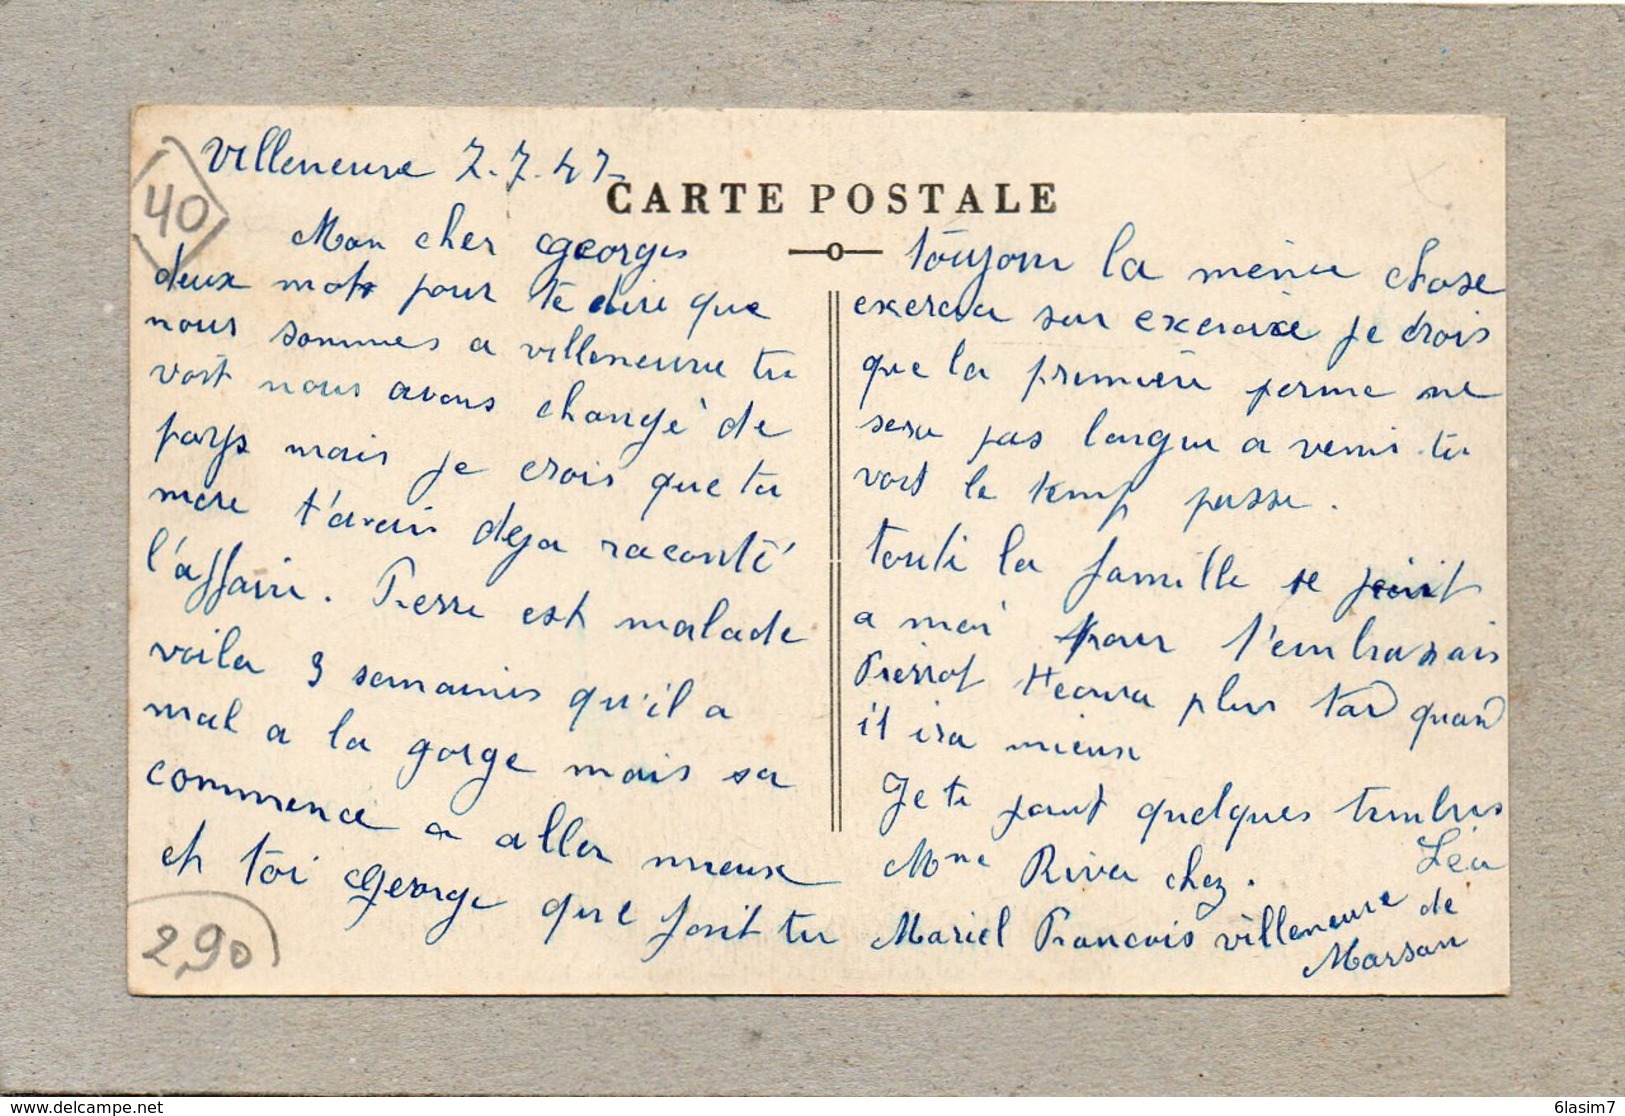 Villeneuve 7.7.47
40
CARTE POSTALE
Mon cher Georges
deux mots pour te dire que
nous sommes a villeneuve tu
voit nous avons changé de
pays mais je crois que ta
mere t'avais deja raconté
l'affaire. Pierre est malade
voila 3 semaines qu'il a
mal a la gorge mais sa
commence a aller mieux
et toi George que fait tu
290
toujour la même chose
exercice sur exercice je crois
que la première perme ne
sera pas longue a venir tu
voit le temp passe.
toute la famille se joint
a moi pour t'embrassais
Pierrot t'ecrira plus tard quand
il ira mieux
Je te joint quelques timbres
Léa
Mme Riva chez.
Mariel Francois villeneuve de
Marsan
delcampe.net
6lasim7